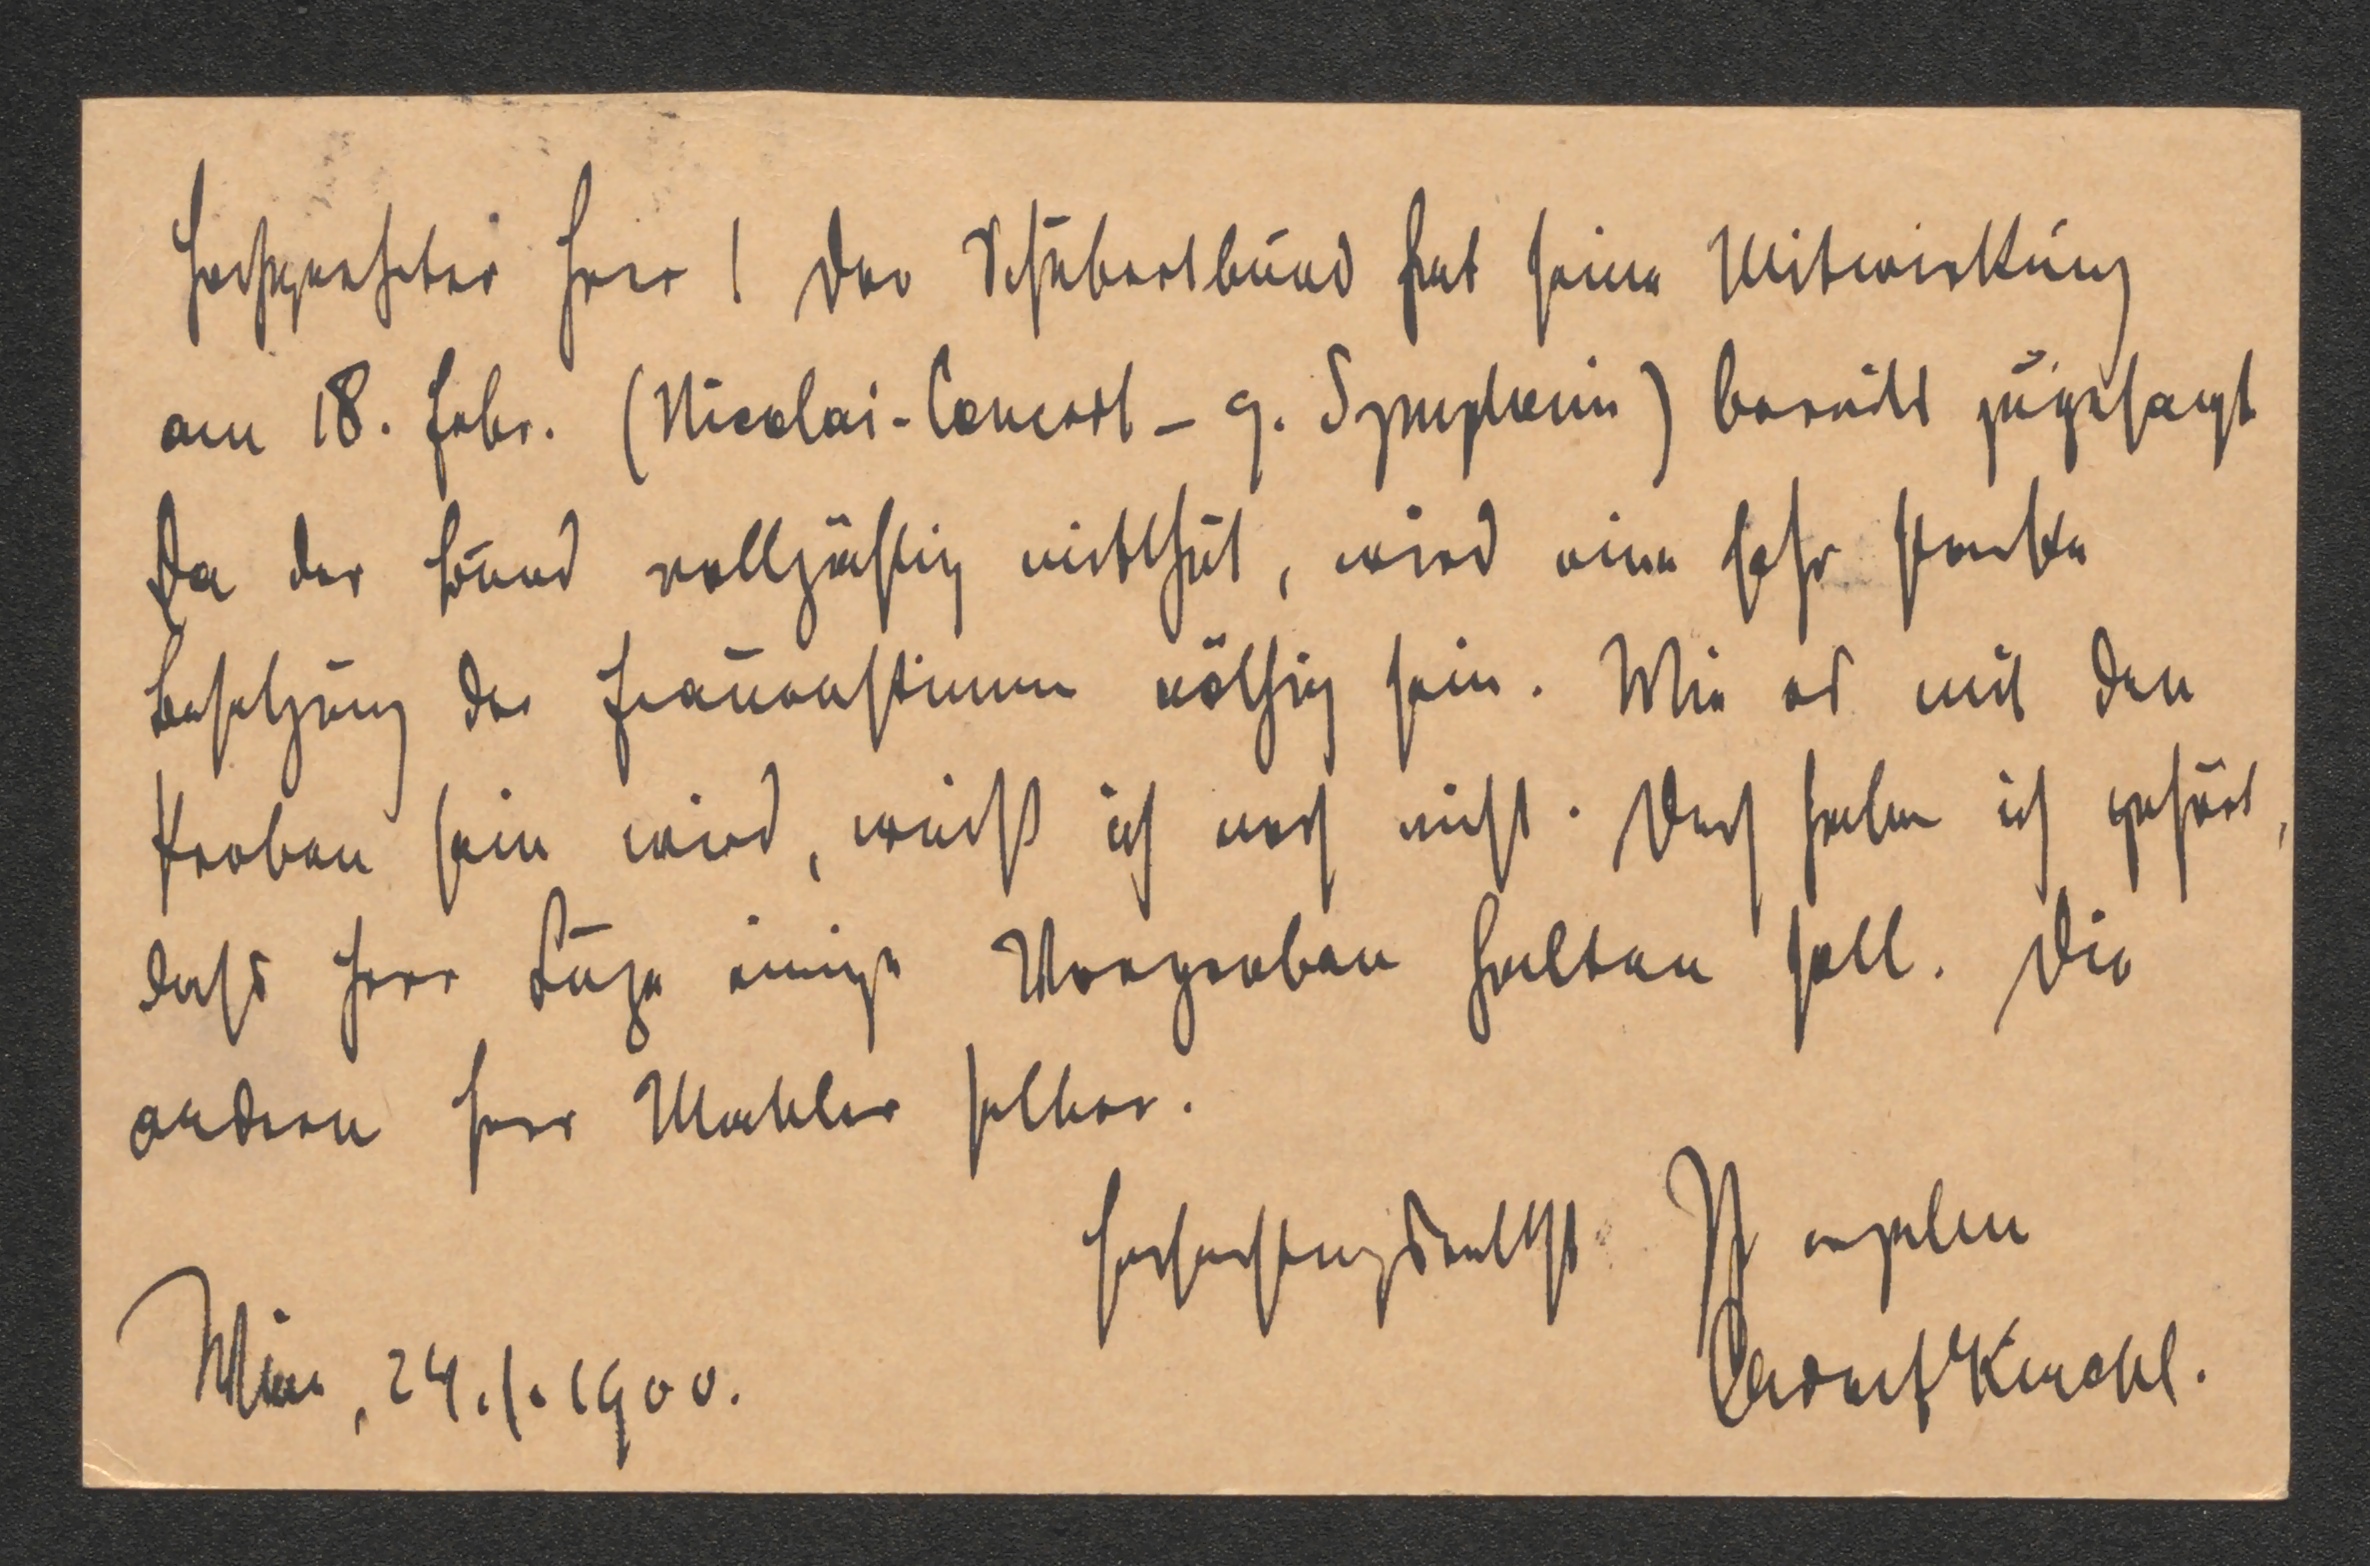 Hochgeehrter Herr! Der Schubertbund hat seine Mitwirkung
am 18. Febr. (Nicolai-Concert – 9. Symphonie) bereits zugesagt
Da der Bund vollzählig mitthut, wird eine sehr starke
Besetzung der Frauenstimmen nöthig sein. Wie es mit den
Proben sein wird, weiß ich noch nicht. Doch habe ich gehört,
dass Herr Luze einige Vorproben halten soll. Die
andern Herr Mahler selber.
Hochachtungsvollst Ihr ergeben
Wien, 24./1. 1900. Adolf Kirchl.